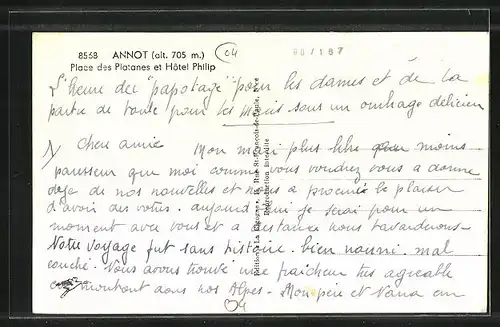 8568 ANNOT (alt. 705 m.)
Place des Platanes et Hôtel Philip
04
L'heure des "papotages" pour les dames et de la
partie de boule pour les maris sous un ombrage délicieux
chere amie Mon mari plus libre moins
paresseux que moi comme vous voudrez vous a donné
deja de nos nouvelles et nous a procuré le plaisir
d'avoir des votres. aujourd'hui je serai pour un
moment avec vous et a distance nous bavarderons -
Notre voyage fut sans histoire. bien nourri. mal
couché. Nous avons trouvé une fraicheur très agréable
en montant dans nos Alpes. Mon père et Nana en
04
Reproduction interdite